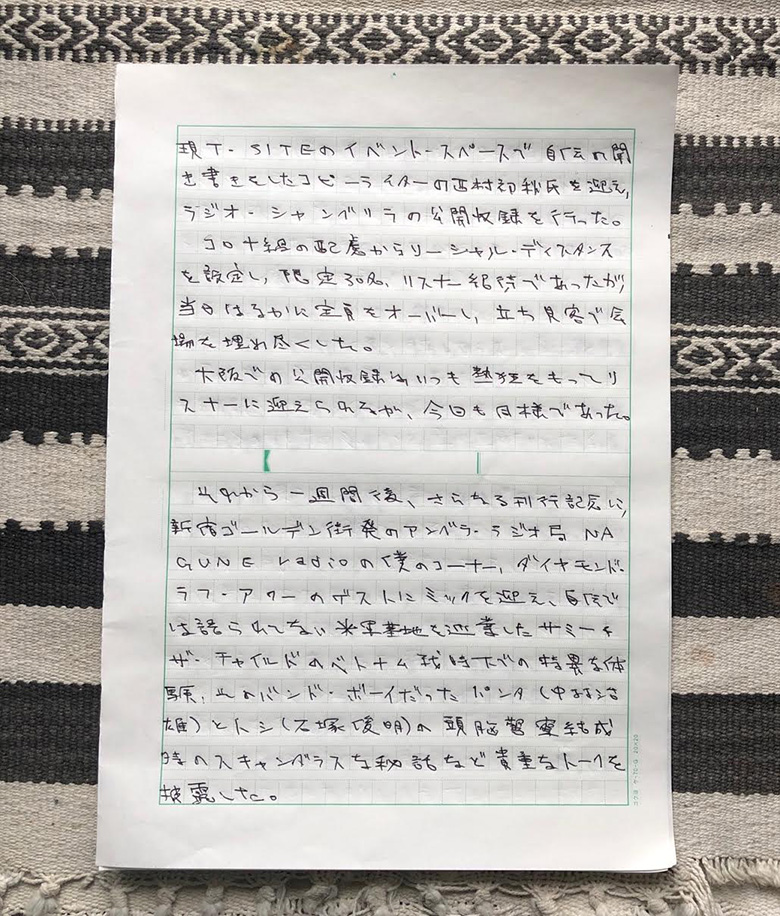 現T-SITEのイベント・スペースで自伝の聞
き書きをしたコピーライターの西村初秋氏を迎え、
ラジオ・シャングリラの公開収録を行った。
コロナ緩の配慮からソーシャル・ディスタンス
を設定し、限定30名、リスナー招待であったが、
当日はるかに定員をオーバーし、立ち見客で会
場を埋め尽くした。
大阪での公開収録はいつも熱狂をもってリ
スナーに迎えられるが、今回も同様であった。
それから一週間後、さらなる刊行記念に、
新宿ゴールデン街発のアングラ・ラジオ局 NA
GUNE radioの僕のコーナー、ダイヤモンド・
ラフ・アワーのゲストにミックを迎え、自伝で
は語られてない米軍基地を巡業したサミー&
ザ・チャイルドのベトナム戦時下での特異な体
験、そのバンド・ボーイだったポンタ(中村治
雄)とトシ(石塚俊明)の頭脳警察結成
時のスキャンダラスな秘話など貴重なトークを
披露した。
コクヨ ケ-70 20×20